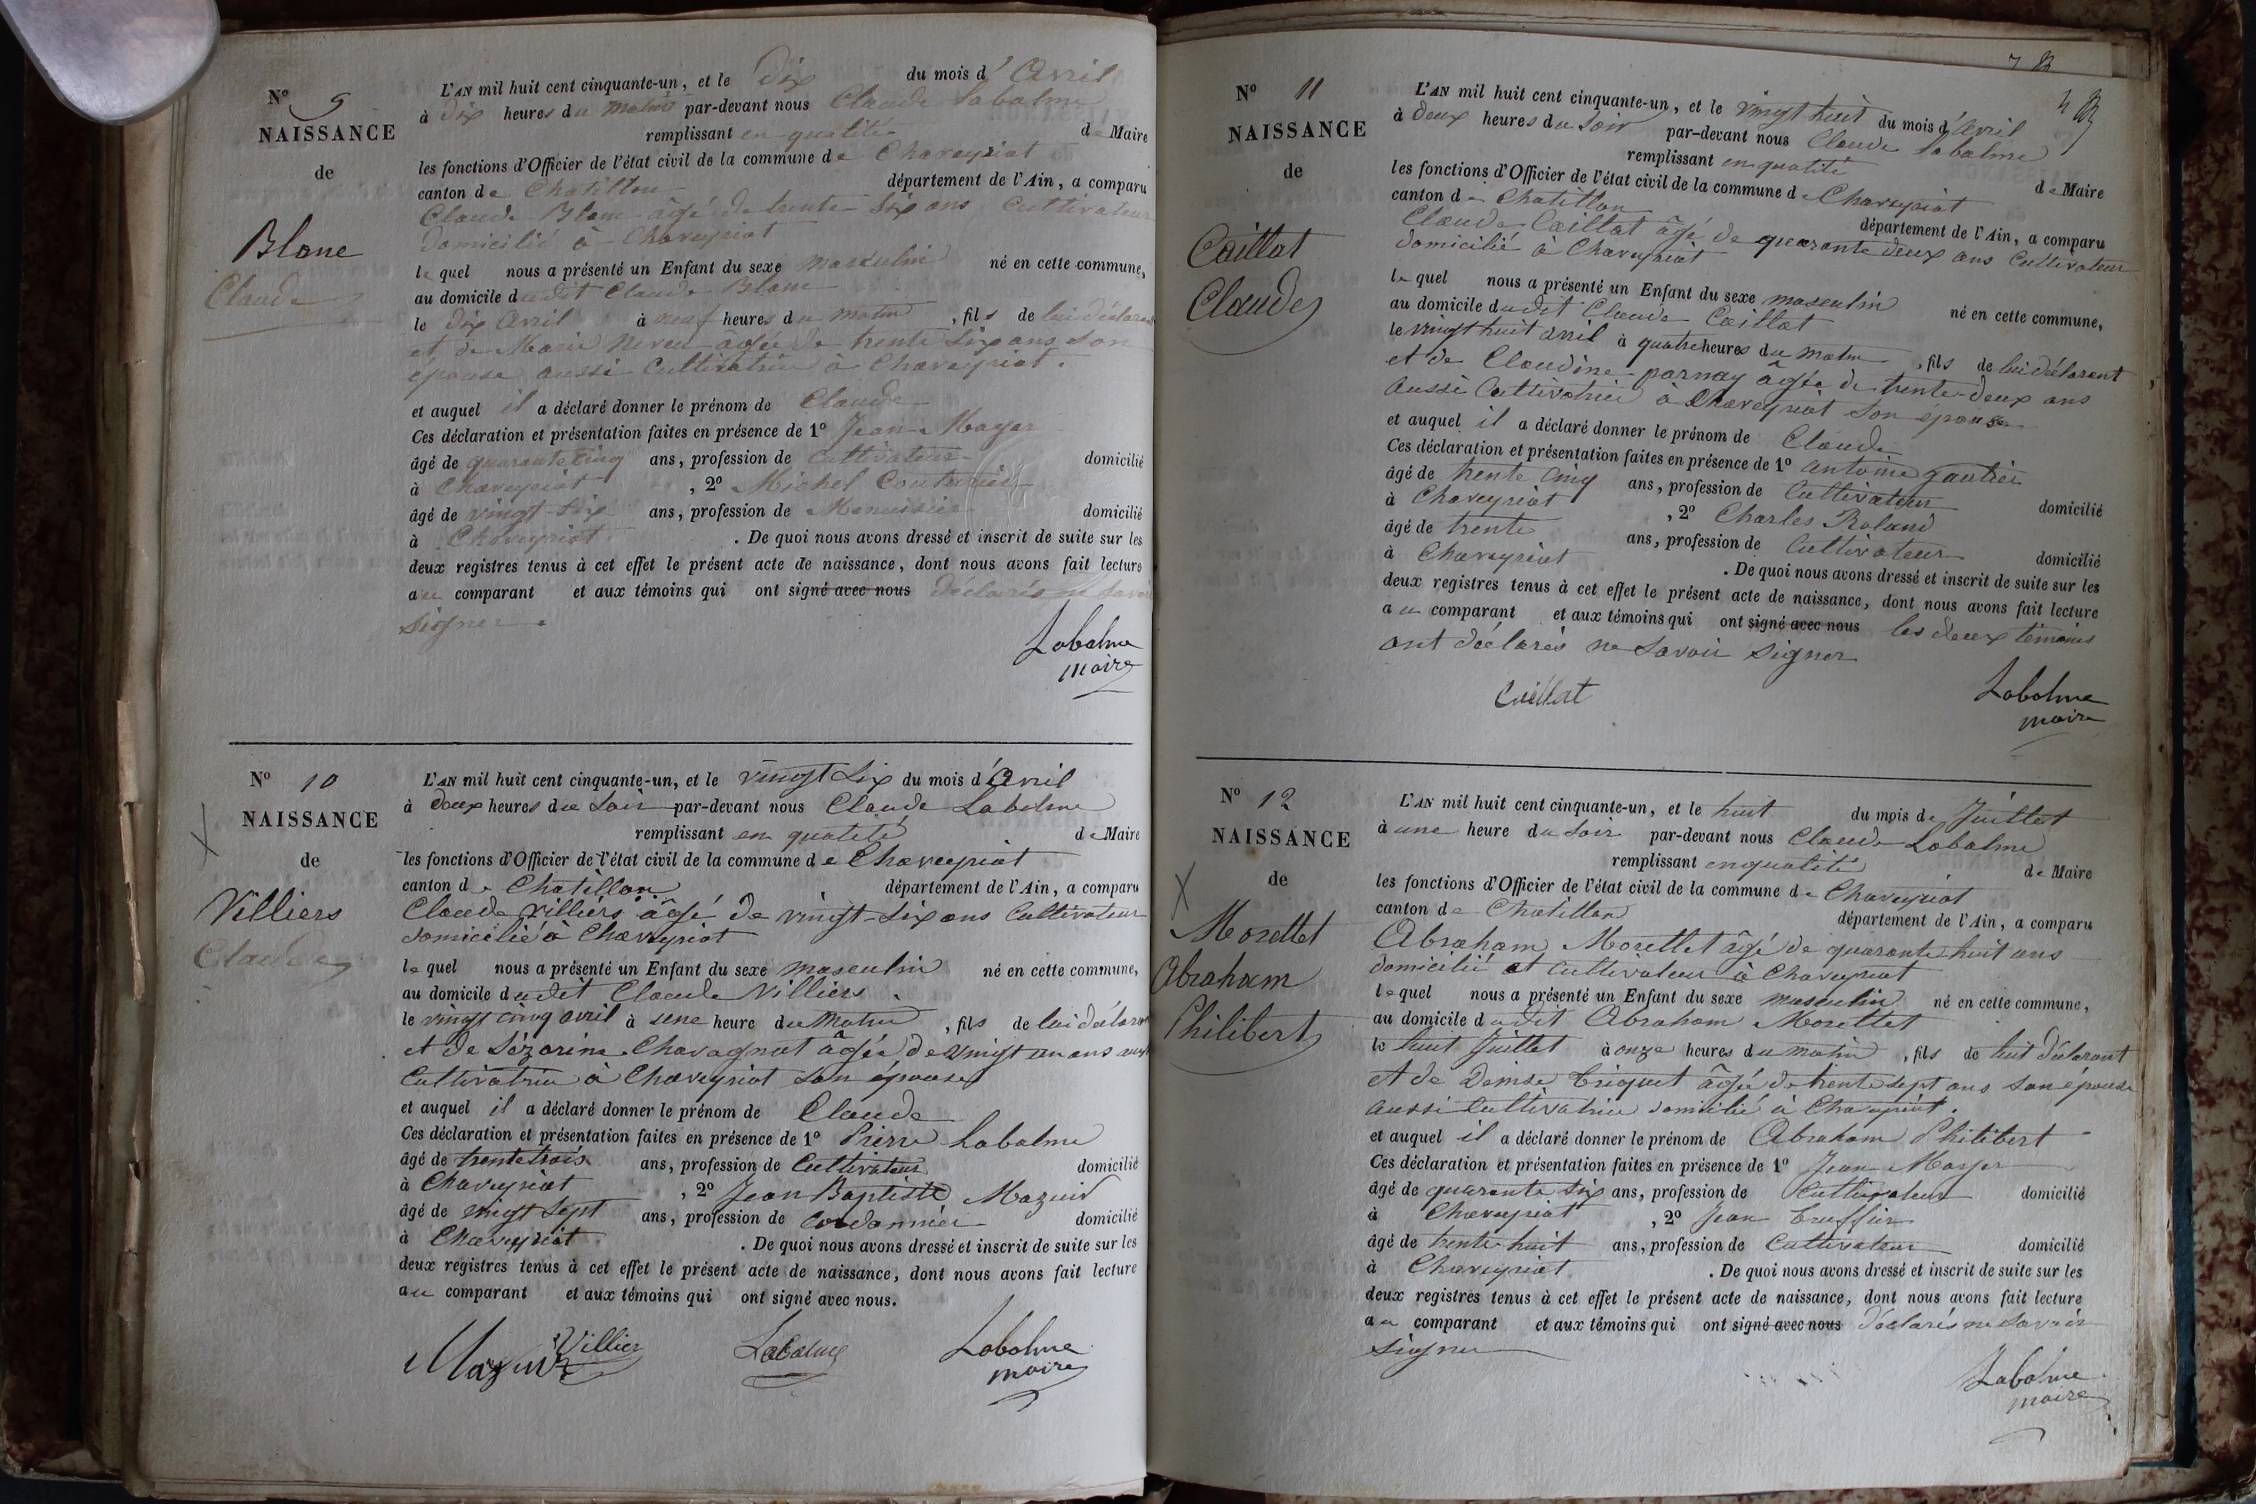 Nº 9
NAISSANCE
de
Blanc
Claude
L'AN mil huit cent cinquante-un, et le dix du mois d'Avril
à dix heures du matin par-devant nous Claude Labalme
remplissant en qualité de Maire
les fonctions d'Officier de l'état civil de la commune de Chaveyriat
canton de Chatillon département de l'Ain, a comparu
Claude Blanc âgé de trente-six ans Cultivateur
domicilié à Chaveyriat
lequel nous a présenté un Enfant du sexe masculin né en cette commune,
au domicile dudit Claude Blanc
le dix Avril à neuf heures du matin, fils de lui déclarant
et de Marie Neveu âgée de trente six ans son
épouse aussi Cultivatrice à Chaveyriat.
et auquel il a déclaré donner le prénom de Claude
Ces déclaration et présentation faites en présence de 1º Jean Mayer
âgé de quarante cinq ans, profession de Cultivateur domicilié
à Chaveyriat, 2º Michel Couturier
âgé de vingt-six ans, profession de Menuisier domicilié
à Chaveyriat. De quoi nous avons dressé et inscrit de suite sur les
deux registres tenus à cet effet le présent acte de naissance, dont nous avons fait lecture
au comparant et aux témoins qui ont signé avec nous déclarés ne savoir
signer.
Labalme
maire
Nº 10
NAISSANCE
de
Villiers
Claude
L'AN mil huit cent cinquante-un, et le vingt six du mois d'Avril
à deux heures du soir par-devant nous Claude Labalme
remplissant en qualité de Maire
les fonctions d'Officier de l'état civil de la commune de Chaveyriat
canton de Chatillon département de l'Ain, a comparu
Claude Villiers âgé de vingt-six ans Cultivateur
domicilié à Chaveyriat
lequel nous a présenté un Enfant du sexe masculin né en cette commune,
au domicile dudit Claude Villiers.
le vingt cinq avril à une heure du matin, fils de lui déclarant
et de Sézarine Chavagnat âgée de vingt un ans aussi
Cultivatrice à Chaveyriat son épouse
et auquel il a déclaré donner le prénom de Claude
Ces déclaration et présentation faites en présence de 1º Pierre Labalme
âgé de trente trois ans, profession de Cultivateur domicilié
à Chaveyriat, 2º Jean Baptiste Mazuir
âgé de vingt sept ans, profession de cordonnier domicilié
à Chaveyriat. De quoi nous avons dressé et inscrit de suite sur les
deux registres tenus à cet effet le présent acte de naissance, dont nous avons fait lecture
au comparant et aux témoins qui ont signé avec nous.
Mazuir Villier Labalme Labalme
maire
Nº 11
NAISSANCE
de
Caillat
Claude
L'AN mil huit cent cinquante-un, et le vingt huit du mois d'Avril
à deux heures du soir par-devant nous Claude Labalme
remplissant en qualité de Maire
les fonctions d'Officier de l'état civil de la commune de Chaveyriat
canton de Chatillon département de l'Ain, a comparu
Claude Caillat âgé de quarante deux ans Cultivateur
domicilié à Chaveyriat
lequel nous a présenté un Enfant du sexe masculin né en cette commune,
au domicile dudit Claude Caillat
le vingt huit avril à quatre heures du matin, fils de lui déclarant
et de Claudine pornay âgée de trente-deux ans
aussi Cultivatrice à Chaveyriat son épouse
et auquel il a déclaré donner le prénom de Claude
Ces déclaration et présentation faites en présence de 1º antoine gautier
âgé de trente cinq ans, profession de Cultivateur domicilié
à Chaveyriat, 2º Charles Roland
âgé de trente ans, profession de Cultivateur domicilié
à Chaveyriat. De quoi nous avons dressé et inscrit de suite sur les
deux registres tenus à cet effet le présent acte de naissance, dont nous avons fait lecture
au comparant et aux témoins qui ont signé avec nous les deux témoins
ont déclarés ne savoir signer
Caillat Labalme
maire
Nº 12
NAISSANCE
de
Morellet
Abraham
Philibert
L'AN mil huit cent cinquante-un, et le huit du mois de Juillet
à une heure du soir par-devant nous Claude Labalme
remplissant en qualité de Maire
les fonctions d'Officier de l'état civil de la commune de Chaveyriat
canton de Chatillon département de l'Ain, a comparu
Abraham Morellet âgé de quarante huit ans
domicilié et cultivateur à Chaveyriat
lequel nous a présenté un Enfant du sexe masculin né en cette commune,
au domicile dudit Abraham Morellet
le huit Juillet à onze heures du matin, fils de lui déclarant
et de Denise Criquet âgée de trente sept ans son épouse
aussi Cultivatrice domicilié à Chaveyriat.
et auquel il a déclaré donner le prénom de Abraham Philibert
Ces déclaration et présentation faites en présence de 1º Jean Mayer
âgé de quarante six ans, profession de Cultivateur domicilié
à Chaveyriat, 2º Jean Truffier
âgé de trente huit ans, profession de Cultivateur domicilié
à Chaveyriat. De quoi nous avons dressé et inscrit de suite sur les
deux registres tenus à cet effet le présent acte de naissance, dont nous avons fait lecture
au comparant et aux témoins qui ont signé avec nous déclarés ne savoir
signer
Labalme
maire